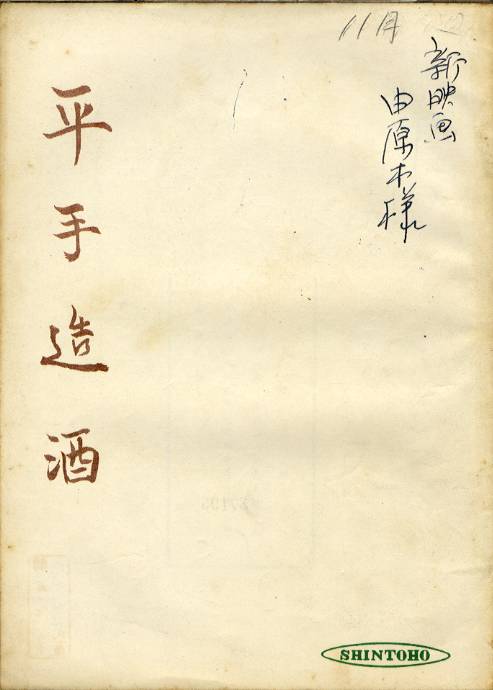 11月
新映画
由原木様
平手造酒
SHINTOHO